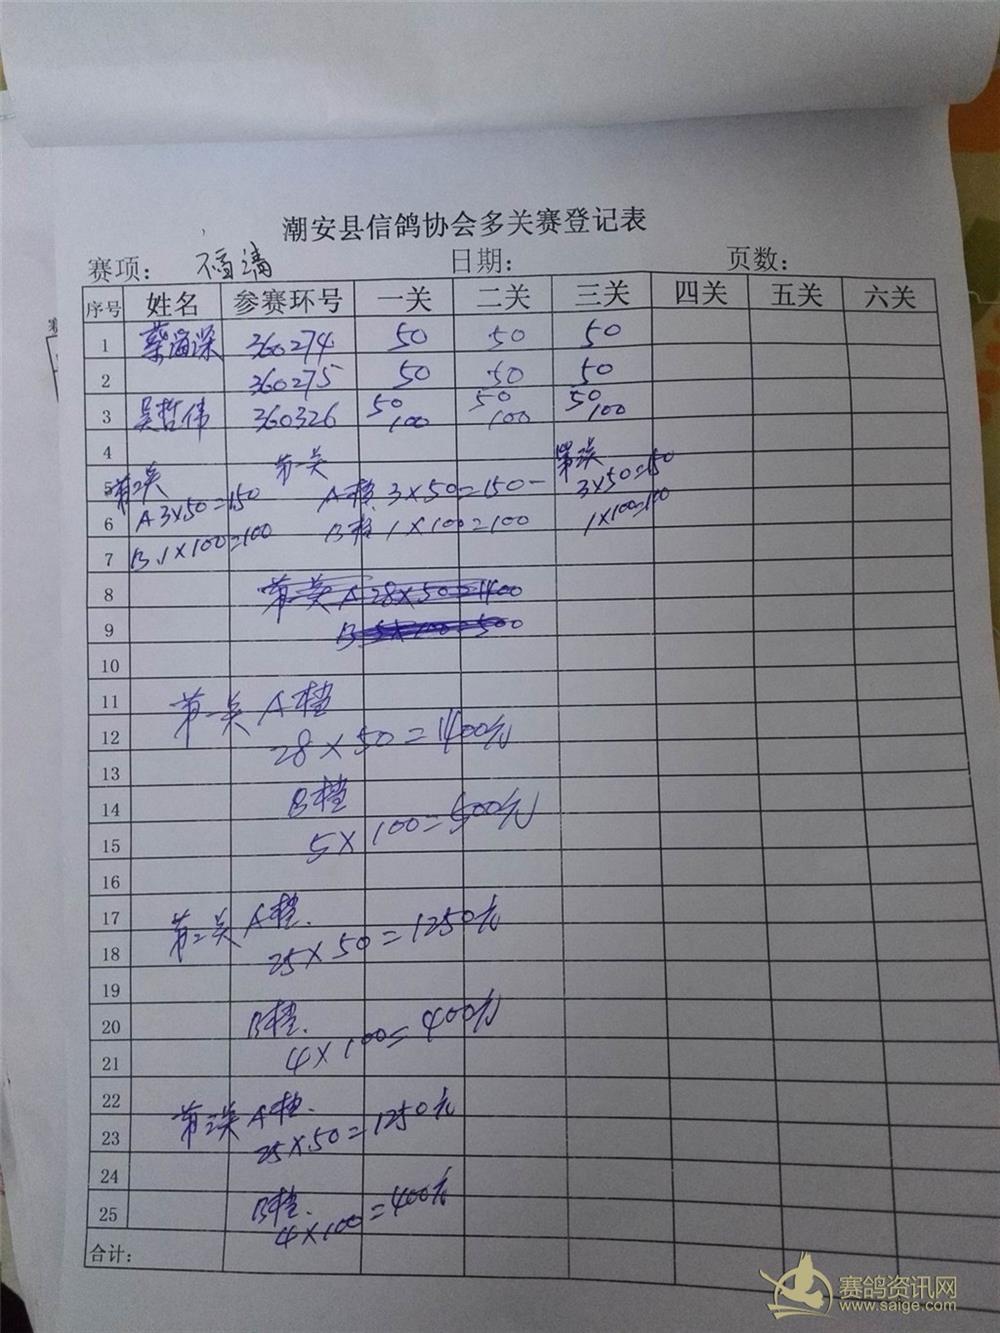 潮安县信鸽协会多关赛登记表
赛项: 福清 日期: 页数:
序号 姓名 参赛环号 一关 二关 三关 四关 五关 六关
1 蔡海深 360274 50 50 50
2 360275 50 50 50
3 吴哲伟 360326 50 100 50 100 50 100
4
5 第二关 第一关 第三关
6 A 3×50=150 A档 3×50=150 3×50=150
7 B、1×100=100 B档 1×100=100 1×100=100
8 第一关 A 28×50=1400
9 B 5×100=500
10
11 第一关 A档
12 28×50=1400元
13
14 B档
15 5×100=500元
16
17 第二关 A档.
18 25×50=1250元
19
20 B档.
21 4×100=400元
22 第三关 A档.
23 25×50=1250元
24
25 B档.
4×100=400元
合计:
赛鸽资讯网
www.saige.com